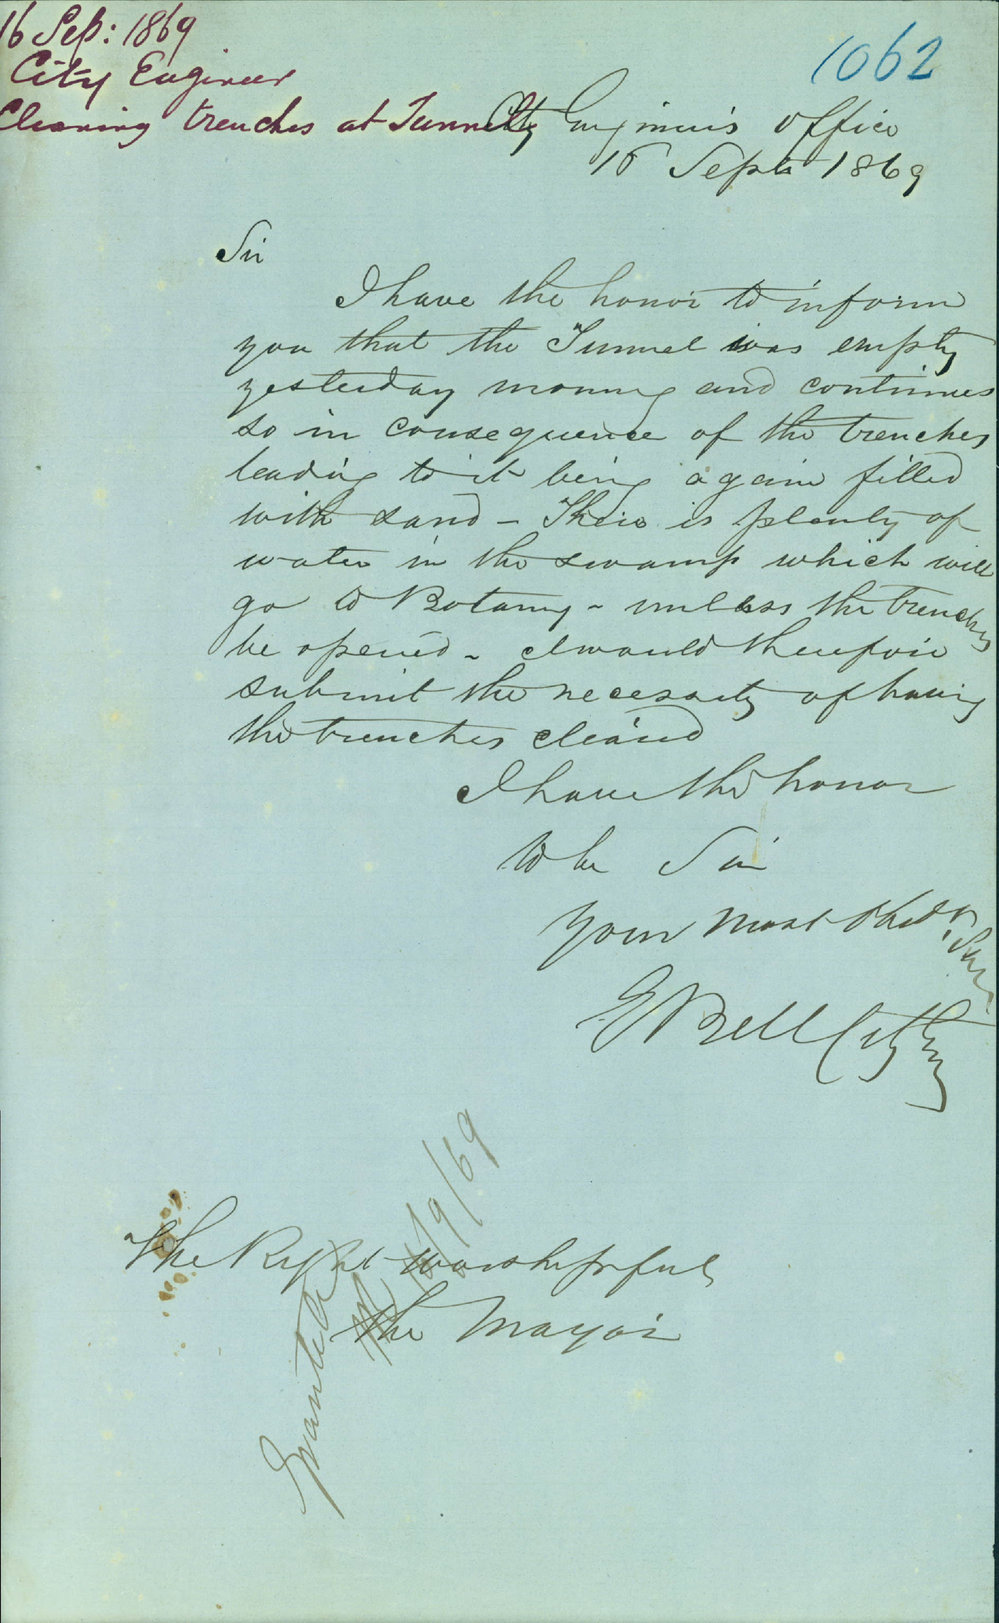 16 Sep: 1869
City Engineer
Clearing trenches at Tunnel
1062
City Engineers office
16 Sept 1869
Sir
I have the honor to inform
you that the Tunnel was empty
yesterday morning and continues
so in consequence of the trenches
leading to it being again filled
with sand - There is plenty of
water in the swamp which will
go to Botany - unless the trenches
be opened - I would therefore
submit the necessity of having
the trenches cleared
I have the honor
to be Sir
Your most Obedt Serv
E Bell City Eng
The Right Worshipful
the Mayor
Granted
/9/69